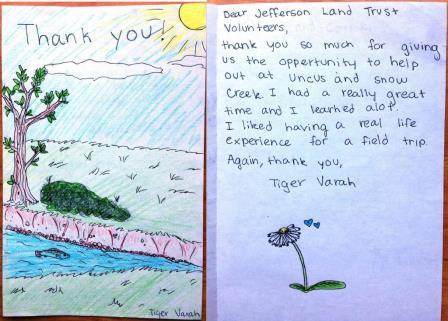 Thank you!
Tiger Varah
Dear Jefferson Land Trust
Volunteers,
thank you so much for giving
us the opportunity to help
out at Uncus and snow
Creek. I had a really great
time and I learned alot.
I liked having a real life
experience for a field trip.
Again, thank you,
Tiger Varah